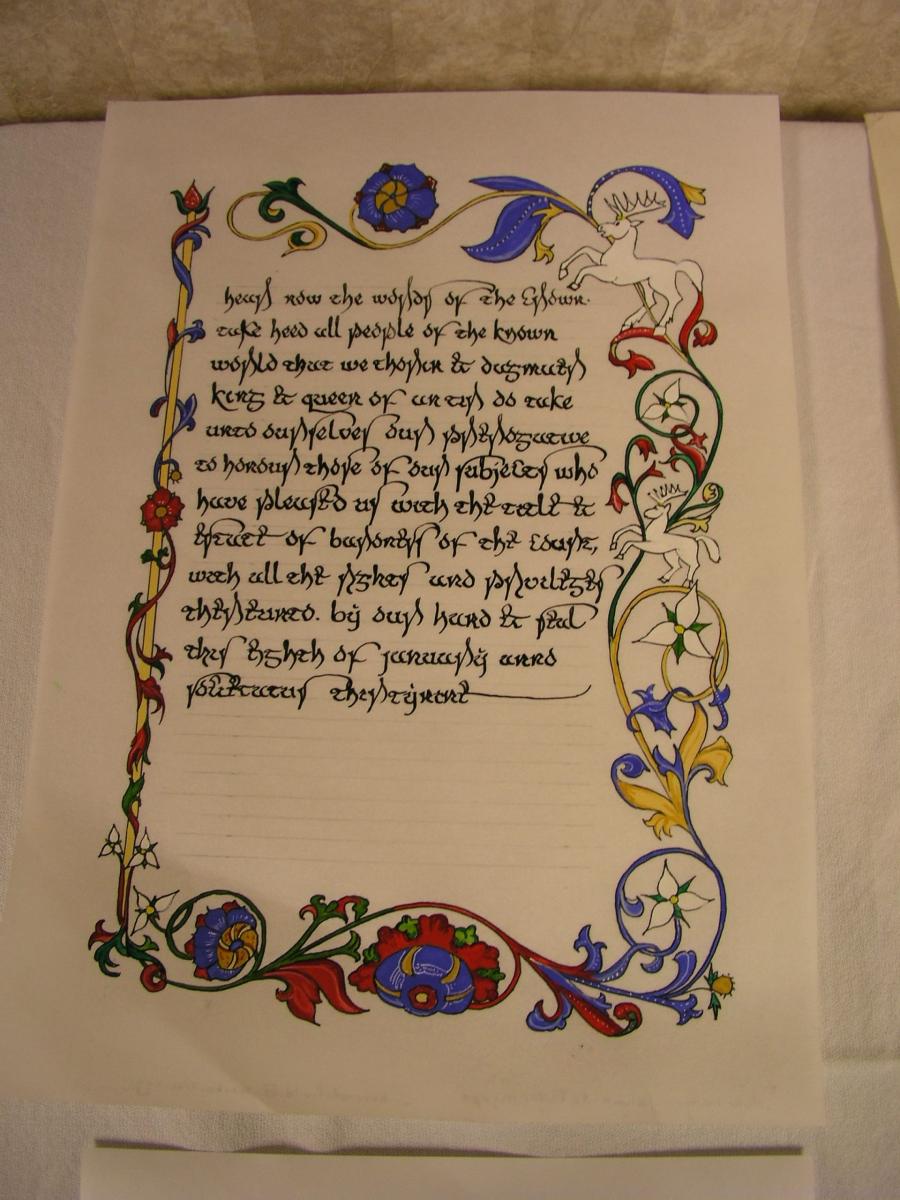 hear now the words of the Crown.
take heed all people of the known
world that we thorin & dagmaer
king & queen of an tir do take
unto ourselves our prerogative
to honour those of our subjects who
have pleas'd us with the title &
estate of baroness of the court,
with all the rights and privileges
thereunto. by our hand & seal
this eighth of january anno
societatus thirtynine